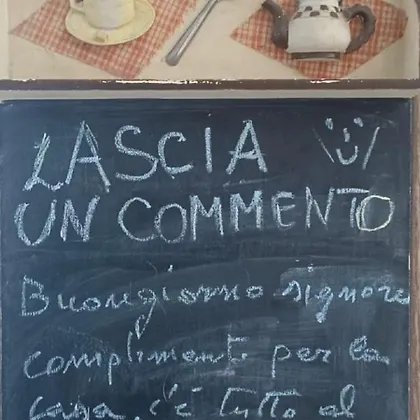 LASCIA
UN COMMENTO
Buongiorno signore
complimenti per la
casa, c'è tutto al